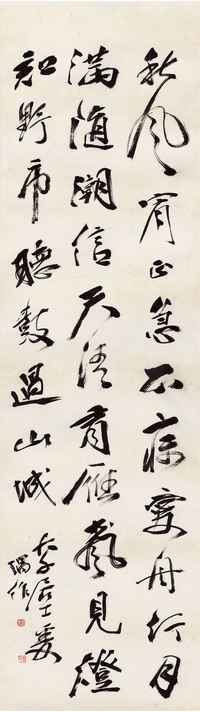 秋風宵正急不夜舟行月
滿隨潮信天清有雁聲見燈
知野市聽鼓過山城
居士
偶作